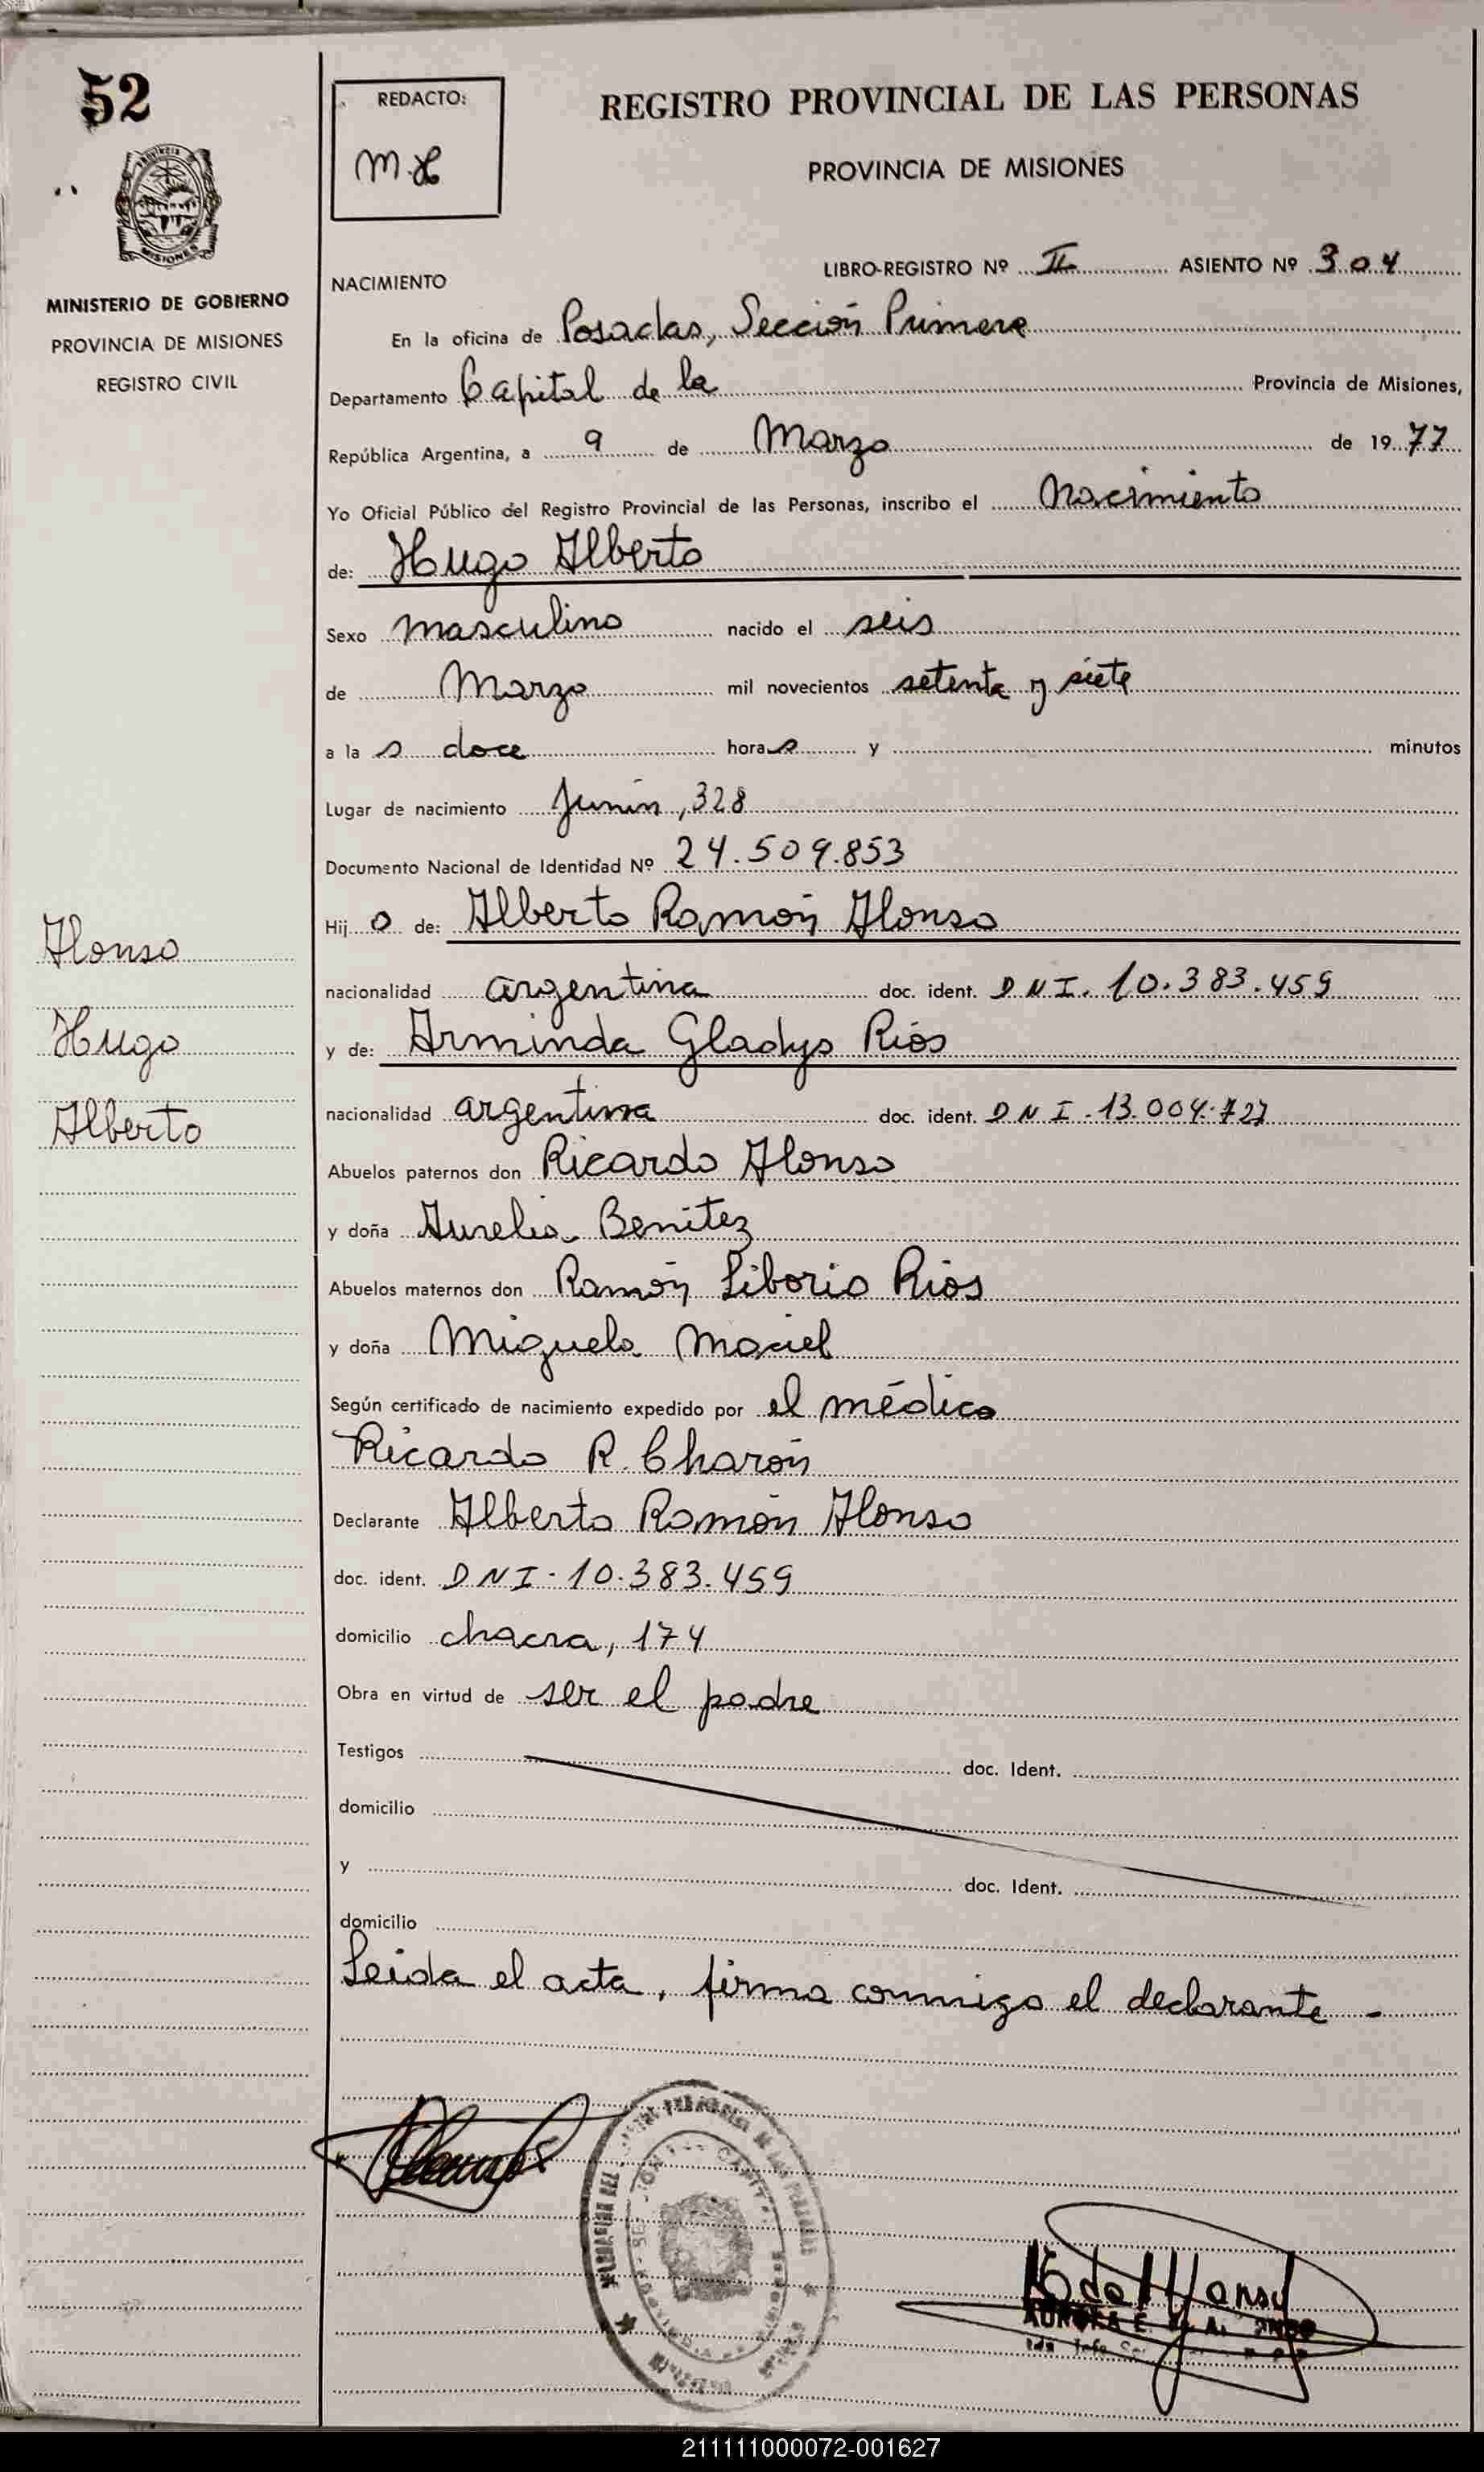 52
REDACTO:
M.H
REGISTRO PROVINCIAL DE LAS PERSONAS
PROVINCIA DE MISIONES
MISIONES
MINISTERIO DE GOBIERNO
PROVINCIA DE MISIONES
REGISTRO CIVIL
LIBRO-REGISTRO Nº II ASIENTO Nº 304
NACIMIENTO
En la oficina de Posadas, Sección Primera
Departamento Capital de la Provincia de Misiones,
República Argentina, a 9 de Marzo de 1977
Yo Oficial Público del Registro Provincial de las Personas, inscribo el Nacimiento
de: Hugo Alberto
Sexo masculino nacido el seis
de Marzo mil novecientos setenta y siete
a la s doce hora s y minutos
Lugar de nacimiento Junín, 328
Documento Nacional de Identidad Nº 24.509.853
Hij o de: Alberto Ramón Alonso
nacionalidad argentina doc. ident. DNI. 10.383.459
y de: Arminda Gladys Ríos
nacionalidad argentina doc. ident. DNI. 13.004.727
Abuelos paternos don Ricardo Alonso
y doña Aurelia Benítez
Abuelos maternos don Ramón Liborio Ríos
y doña Miguela Maciel
Según certificado de nacimiento expedido por el médico
Ricardo R. Charón
Declarante Alberto Ramón Alonso
doc. ident. DNI. 10.383.459
domicilio chacra, 174
Obra en virtud de ser el padre
Testigos doc. Ident.
domicilio
y doc. Ident.
domicilio
Leida el acta, firma conmigo el declarante -
Alonso
Hugo
Alberto
AURORA E.
211111000072-001627